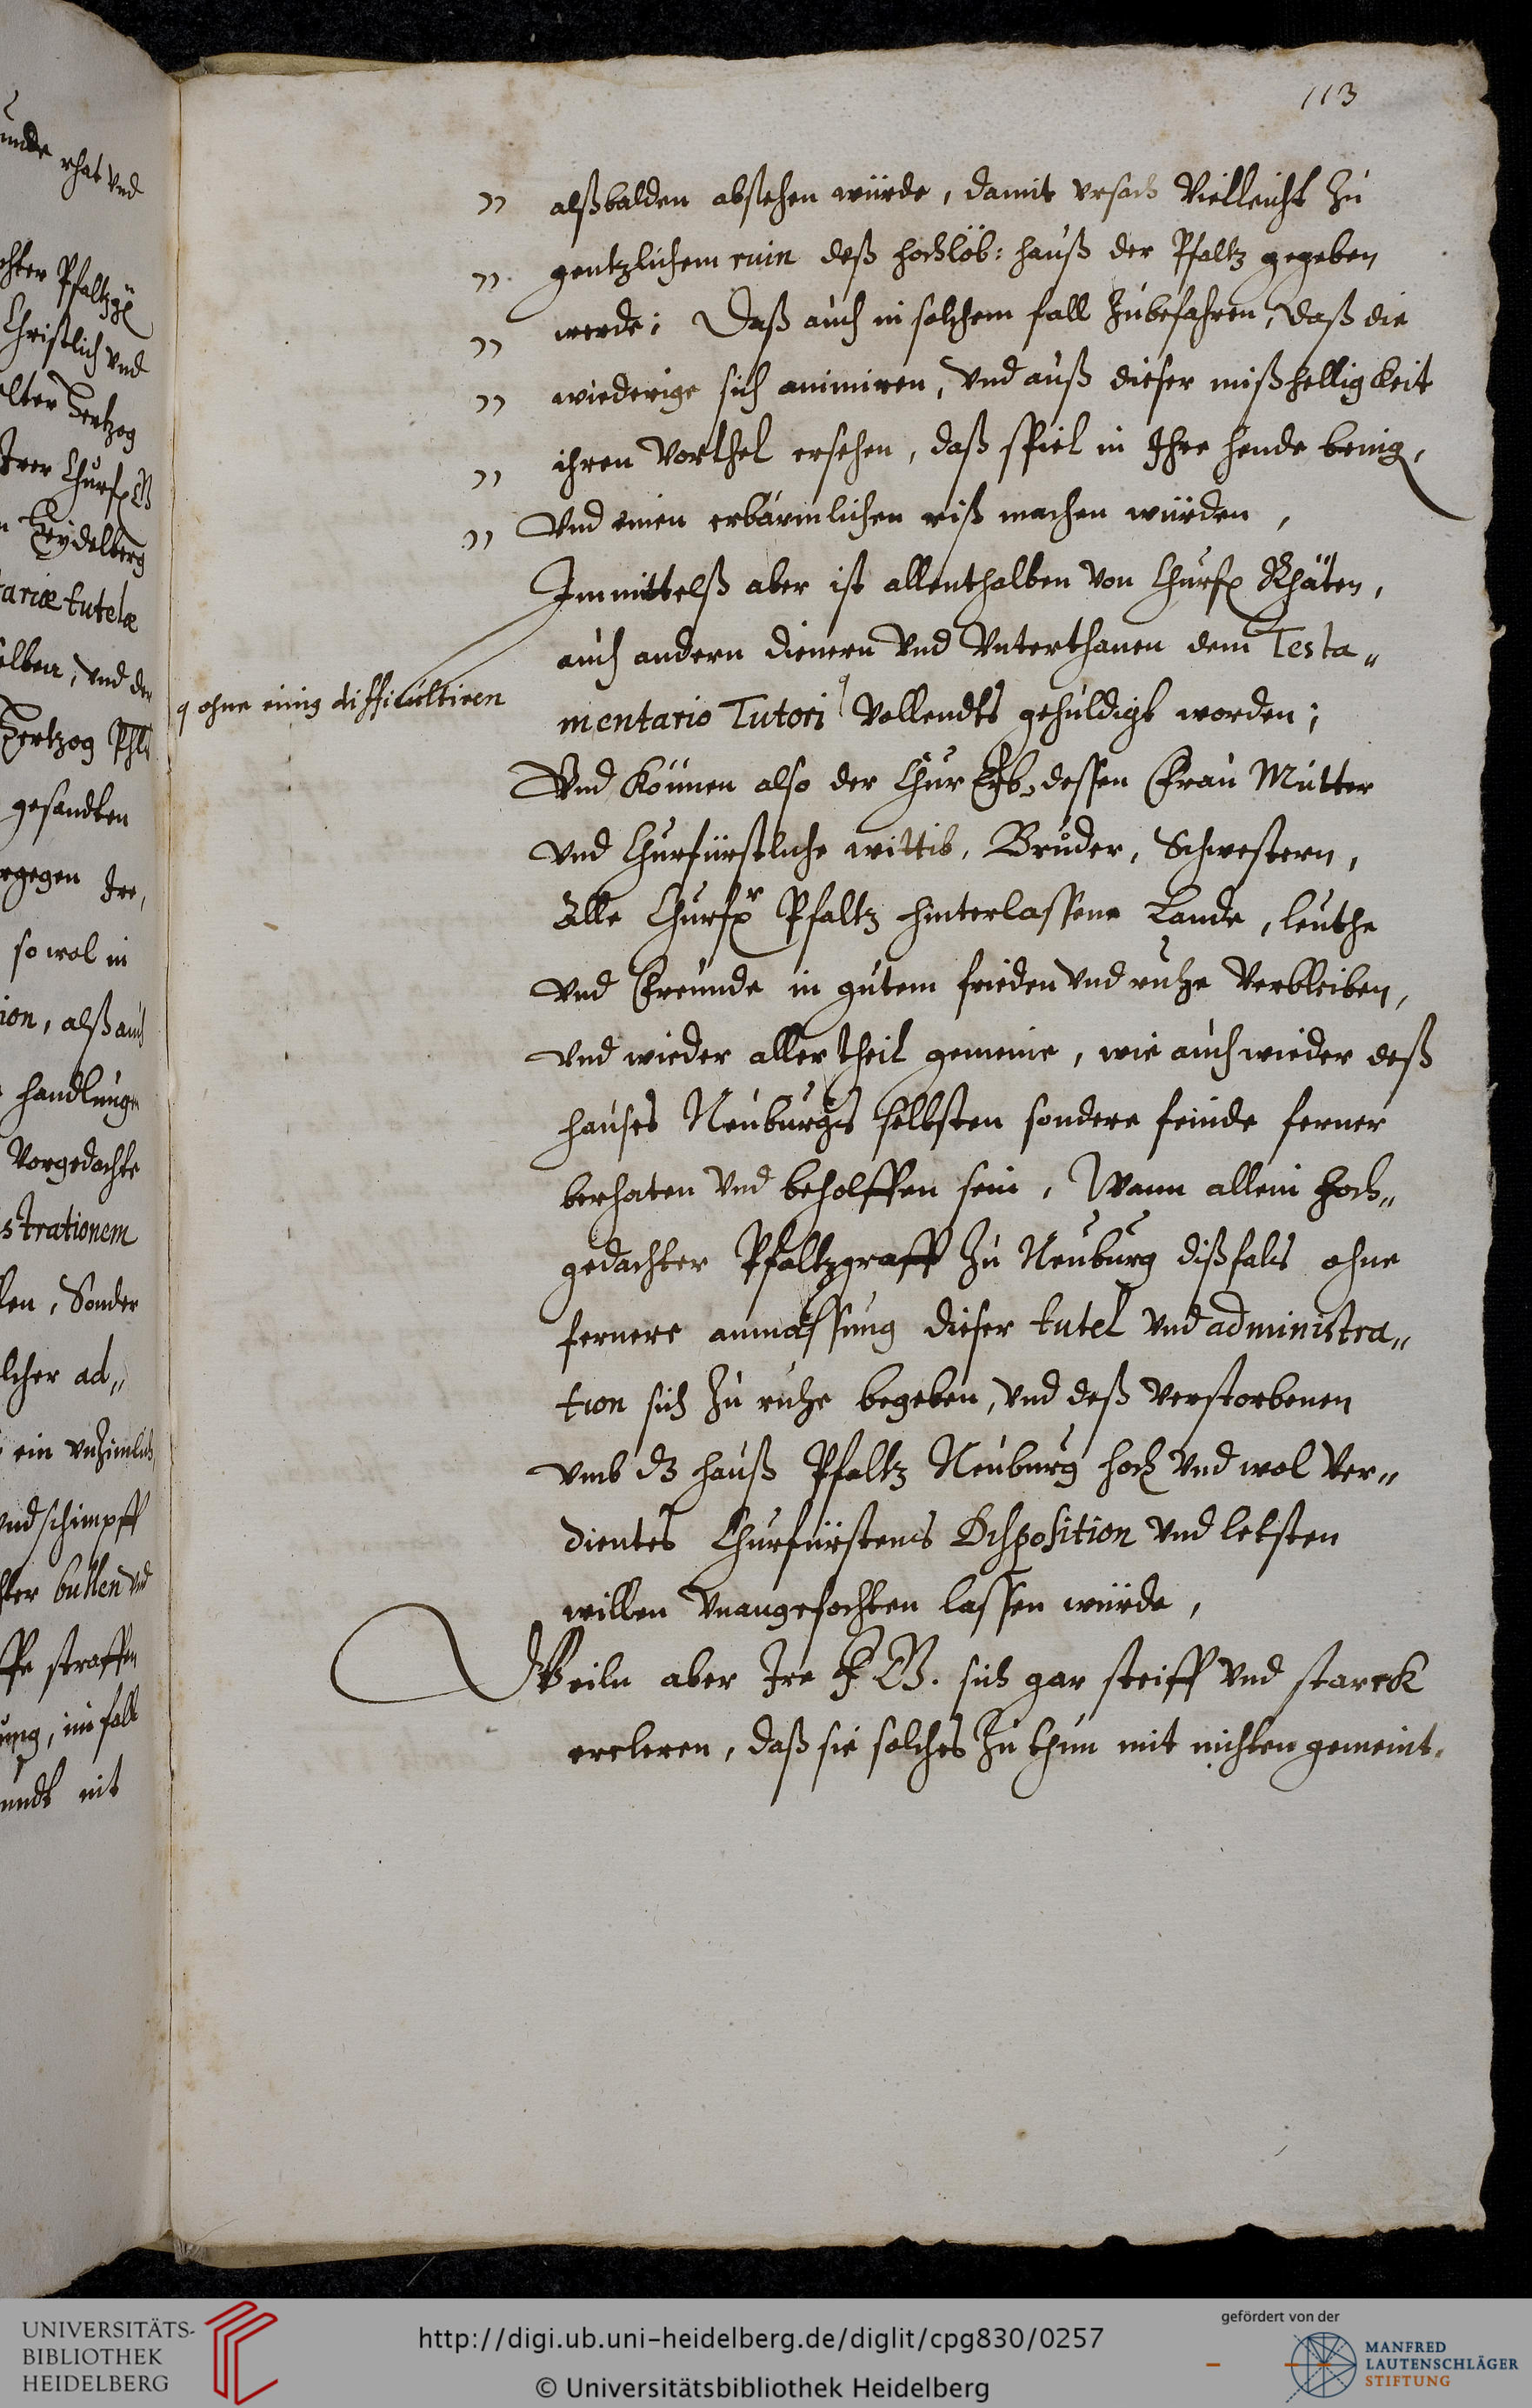 113
" alßbalden abstehen würde, damit vrsach vielleicht zu
" gentzlichem ruin deß hochlöb: hauß der Pfaltz gegeben
" werde; Daß auch in solchem fall zubefahren, daß die
" wiederige sich animiren, vnd auß dieser mißhelligkeit
" ihren vorthel ersehen, daß spiel in Ihre hende bring,
" vnd einen erbärmlichen riß machen würden,
Immittelß aber ist allenthalben von Churf Rhäten,
auch andern dienern vnd vnterthanen dem Testa„
ohne einig difficultiren
mentario Tutori vollendts gehuldigt worden;
Vnd können also der Chur Erb, dessen Frau Mutter
vnd Churfürstliche wittib, Brüder, Schwestern,
Alle Churfr Pfaltz hinterlassene Lande, leuthe
vnd Freunde in gutem frieden vnd ruhe verbleiben,
vnd wieder aller theil gemeine, wie auch wieder deß
hauses Neuburgs selbsten sondere feinde ferner
berhaten vnd beholffen sein, Wann allein hoch„
gedachter Pfaltzgraff zu Neuburg dißfals ohne
fernere anmassung dieser tutel vnd administra„
tion sich zu ruhe begeben, vnd deß verstorbenen
vmb dz hauß Pfaltz Neuburg hoch vnd wol ver„
dientes Churfürstens Disposition vnd letsten
willen vnangefochten lassen würde,
Weiln aber Ire F G. sich gar steiff vnd starck
ercleren, daß sie solches zu thun mit nichten gemeint.
unde rhat vnd
Christlich vnd
Hertzog
Heydelberg
tariæ tutelæ
Hertzog Phls
gesandten
so wol in
ion, alß auch
handlungen
vorgedachte
strationem
Sonder
lcher ad„
ein vnzimlich
vnd schimpff
straffen
im fall
nit
UNIVERSITÄTS-
BIBLIOTHEK
HEIDELBERG
http://digi.ub.uni-heidelberg.de/diglit/cpg830/0257
© Universitätsbibliothek Heidelberg
gefördert von der
MANFRED
LAUTENSCHLÄGER
STIFTUNG